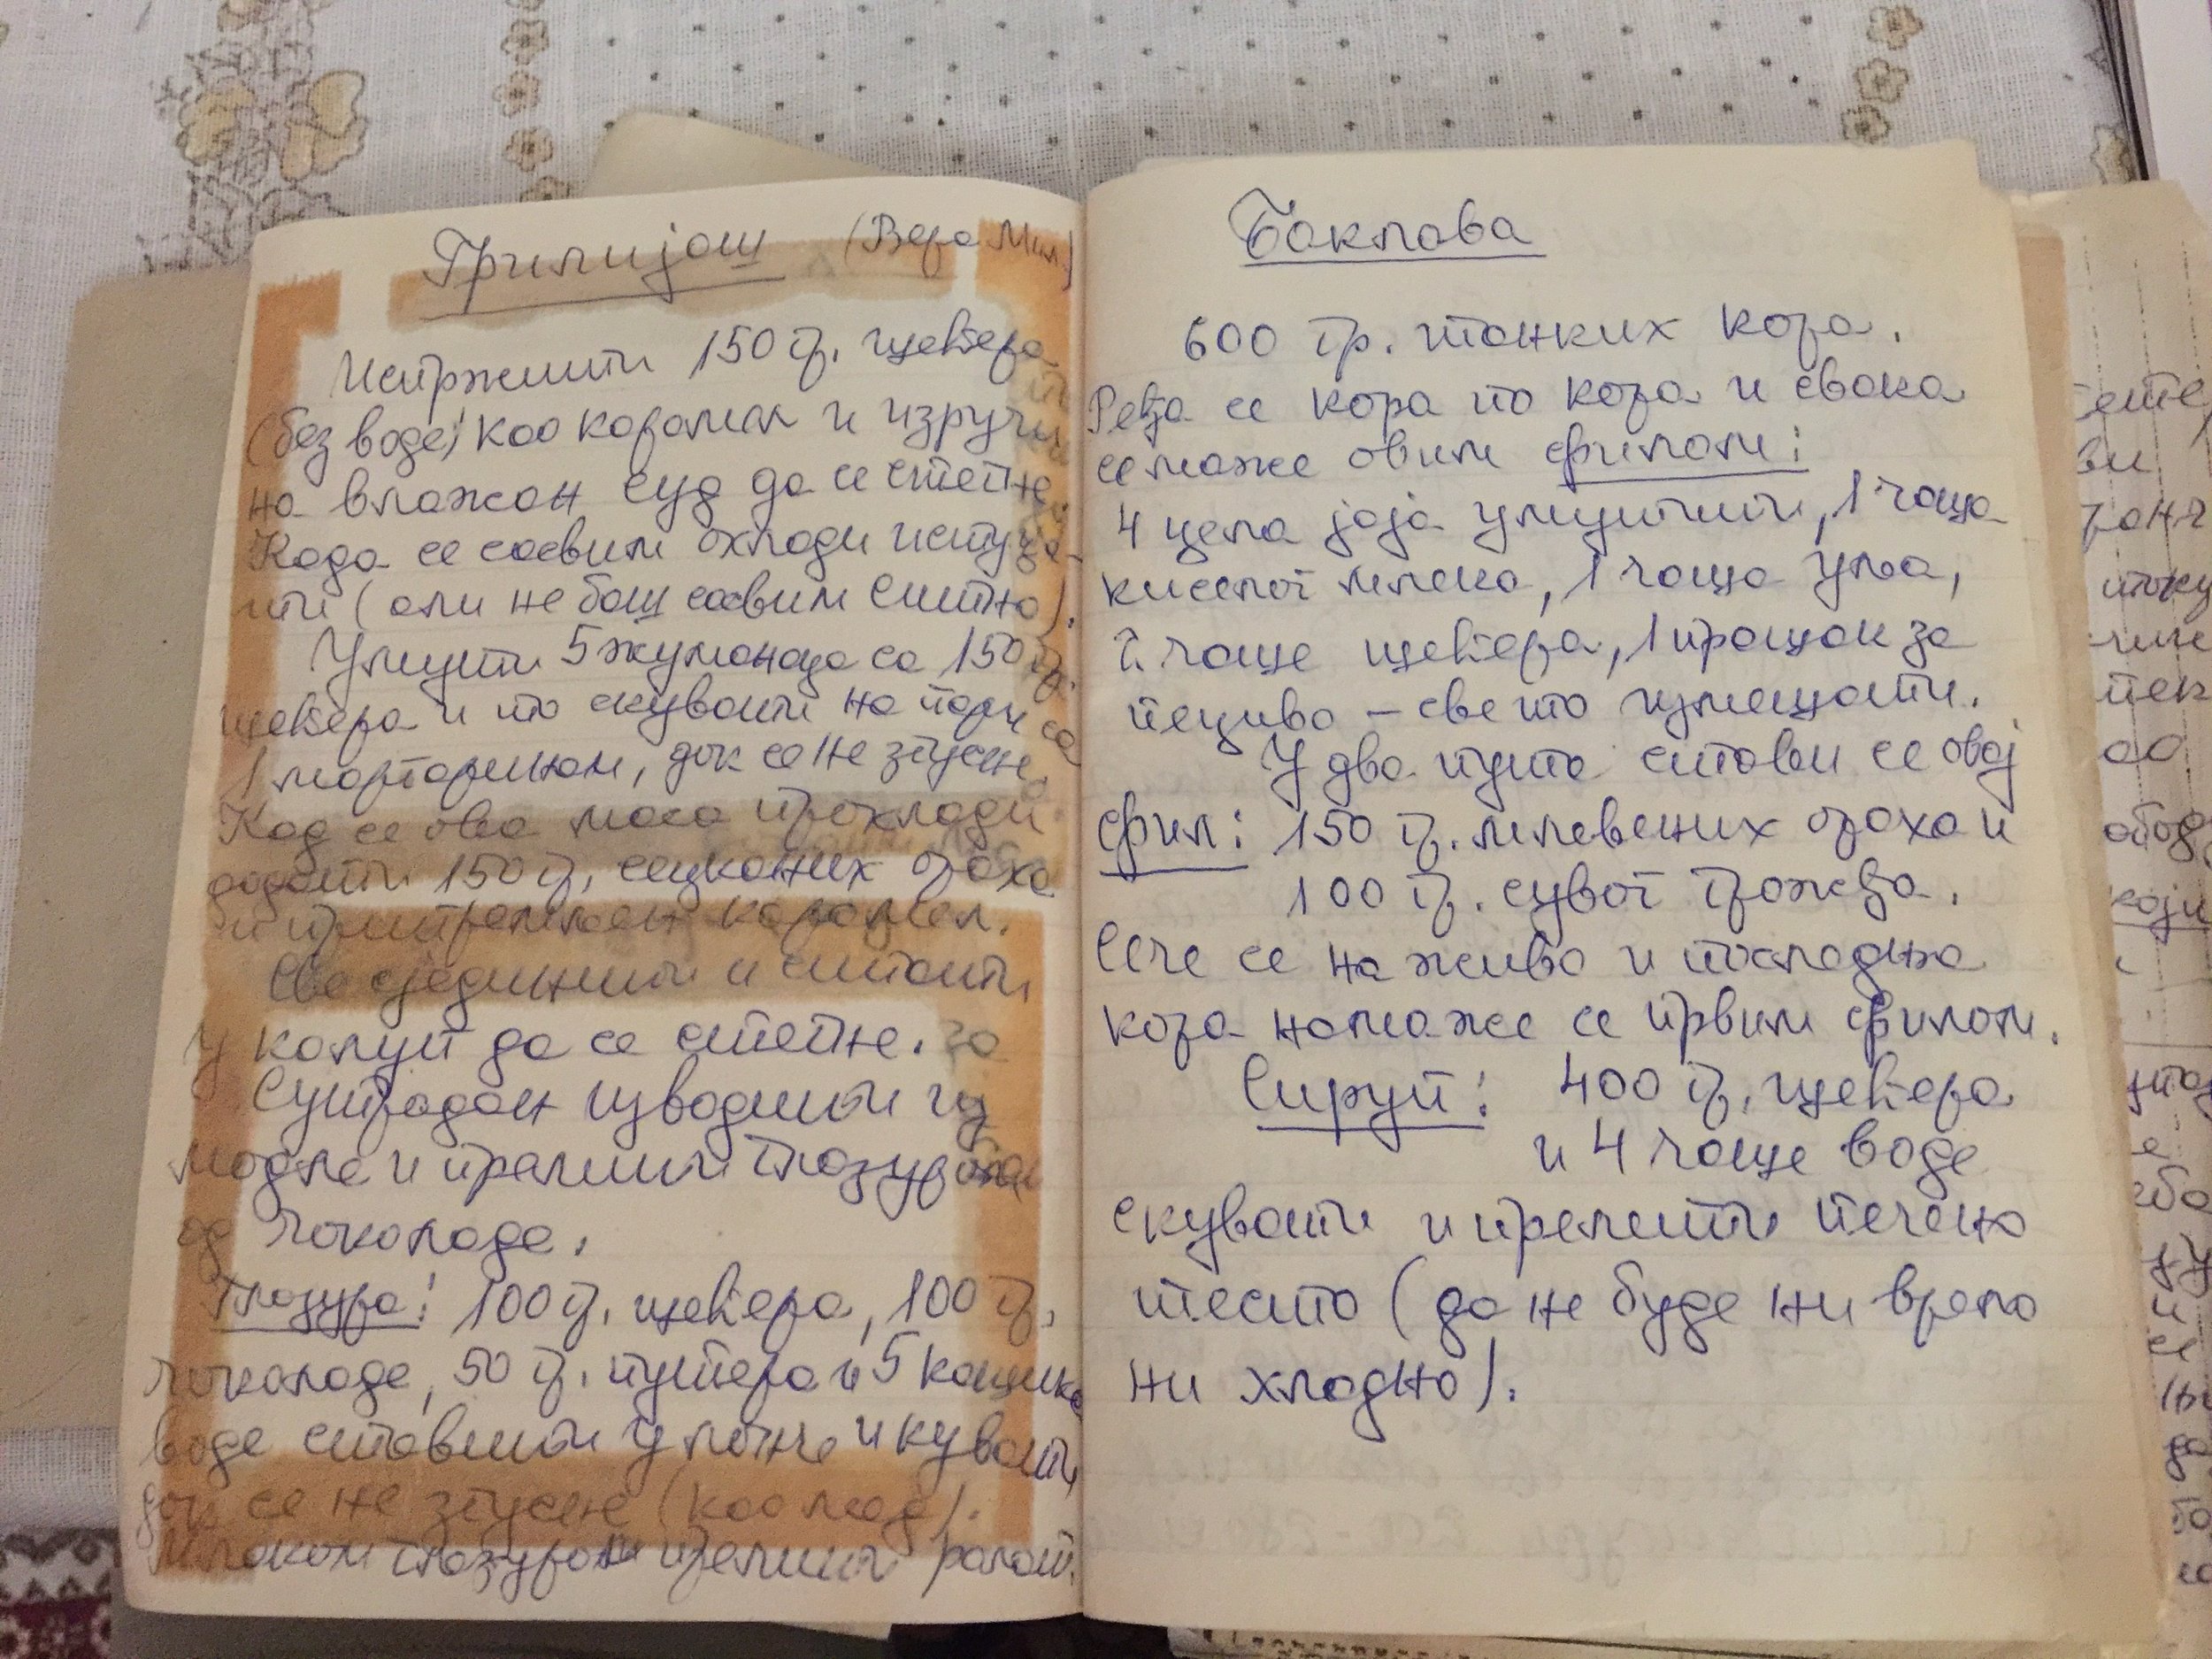 Грилијаш (Вера Мил.)
Испржити 150 гр. шећера
(без воде) као карамел и изручи
на влажан суд да се стегне.
Када се сасвим охлади исту
ити (али не баш сасвим ситно).
Умути 5 жуманаца са 150 гр.
шећера и то скувати на пари са
1 маргарином, док се не згусне.
Кад се ова маса прохлади
додати 150 гр. сецканих ораха
и припремљен карамел.
Све сјединити и сипати
у калуп да се стегне.
Сутрадан извадити из
модле и прелити глазуром
од чоколаде.
Глазура: 100 гр. шећера, 100 гр.
чоколаде, 50 гр. путера и 5 кашика
воде ставити у лонче и кувати
док се не згусне (као мед).
Млаком глазуром прелити

Баклава
600 гр. танких кора.
Ређа се кора по кора и свака
се маже овим филом:
4 цела јаја умутити, 1 чаша
киселог млека, 1 чаша уља,
2 чаше шећера, 1 прашак за
пециво – све то измешати.
У два пута стави се овај
фил: 150 гр. млевених ораха и
100 гр. сувог грожђа.
Сече се на живо и последња
кора намаже се првим филом.
Сируп: 400 гр. шећера
и 4 чаше воде
скувати и прелити печено
тесто (да не буде ни врело
ни хладно).